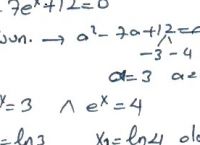 7eˣ+12=0
sun. → a²-7a+12=
-3 -4
a=3 a=
x=3 ∧ eˣ=4
=ln3 x₁=ln4